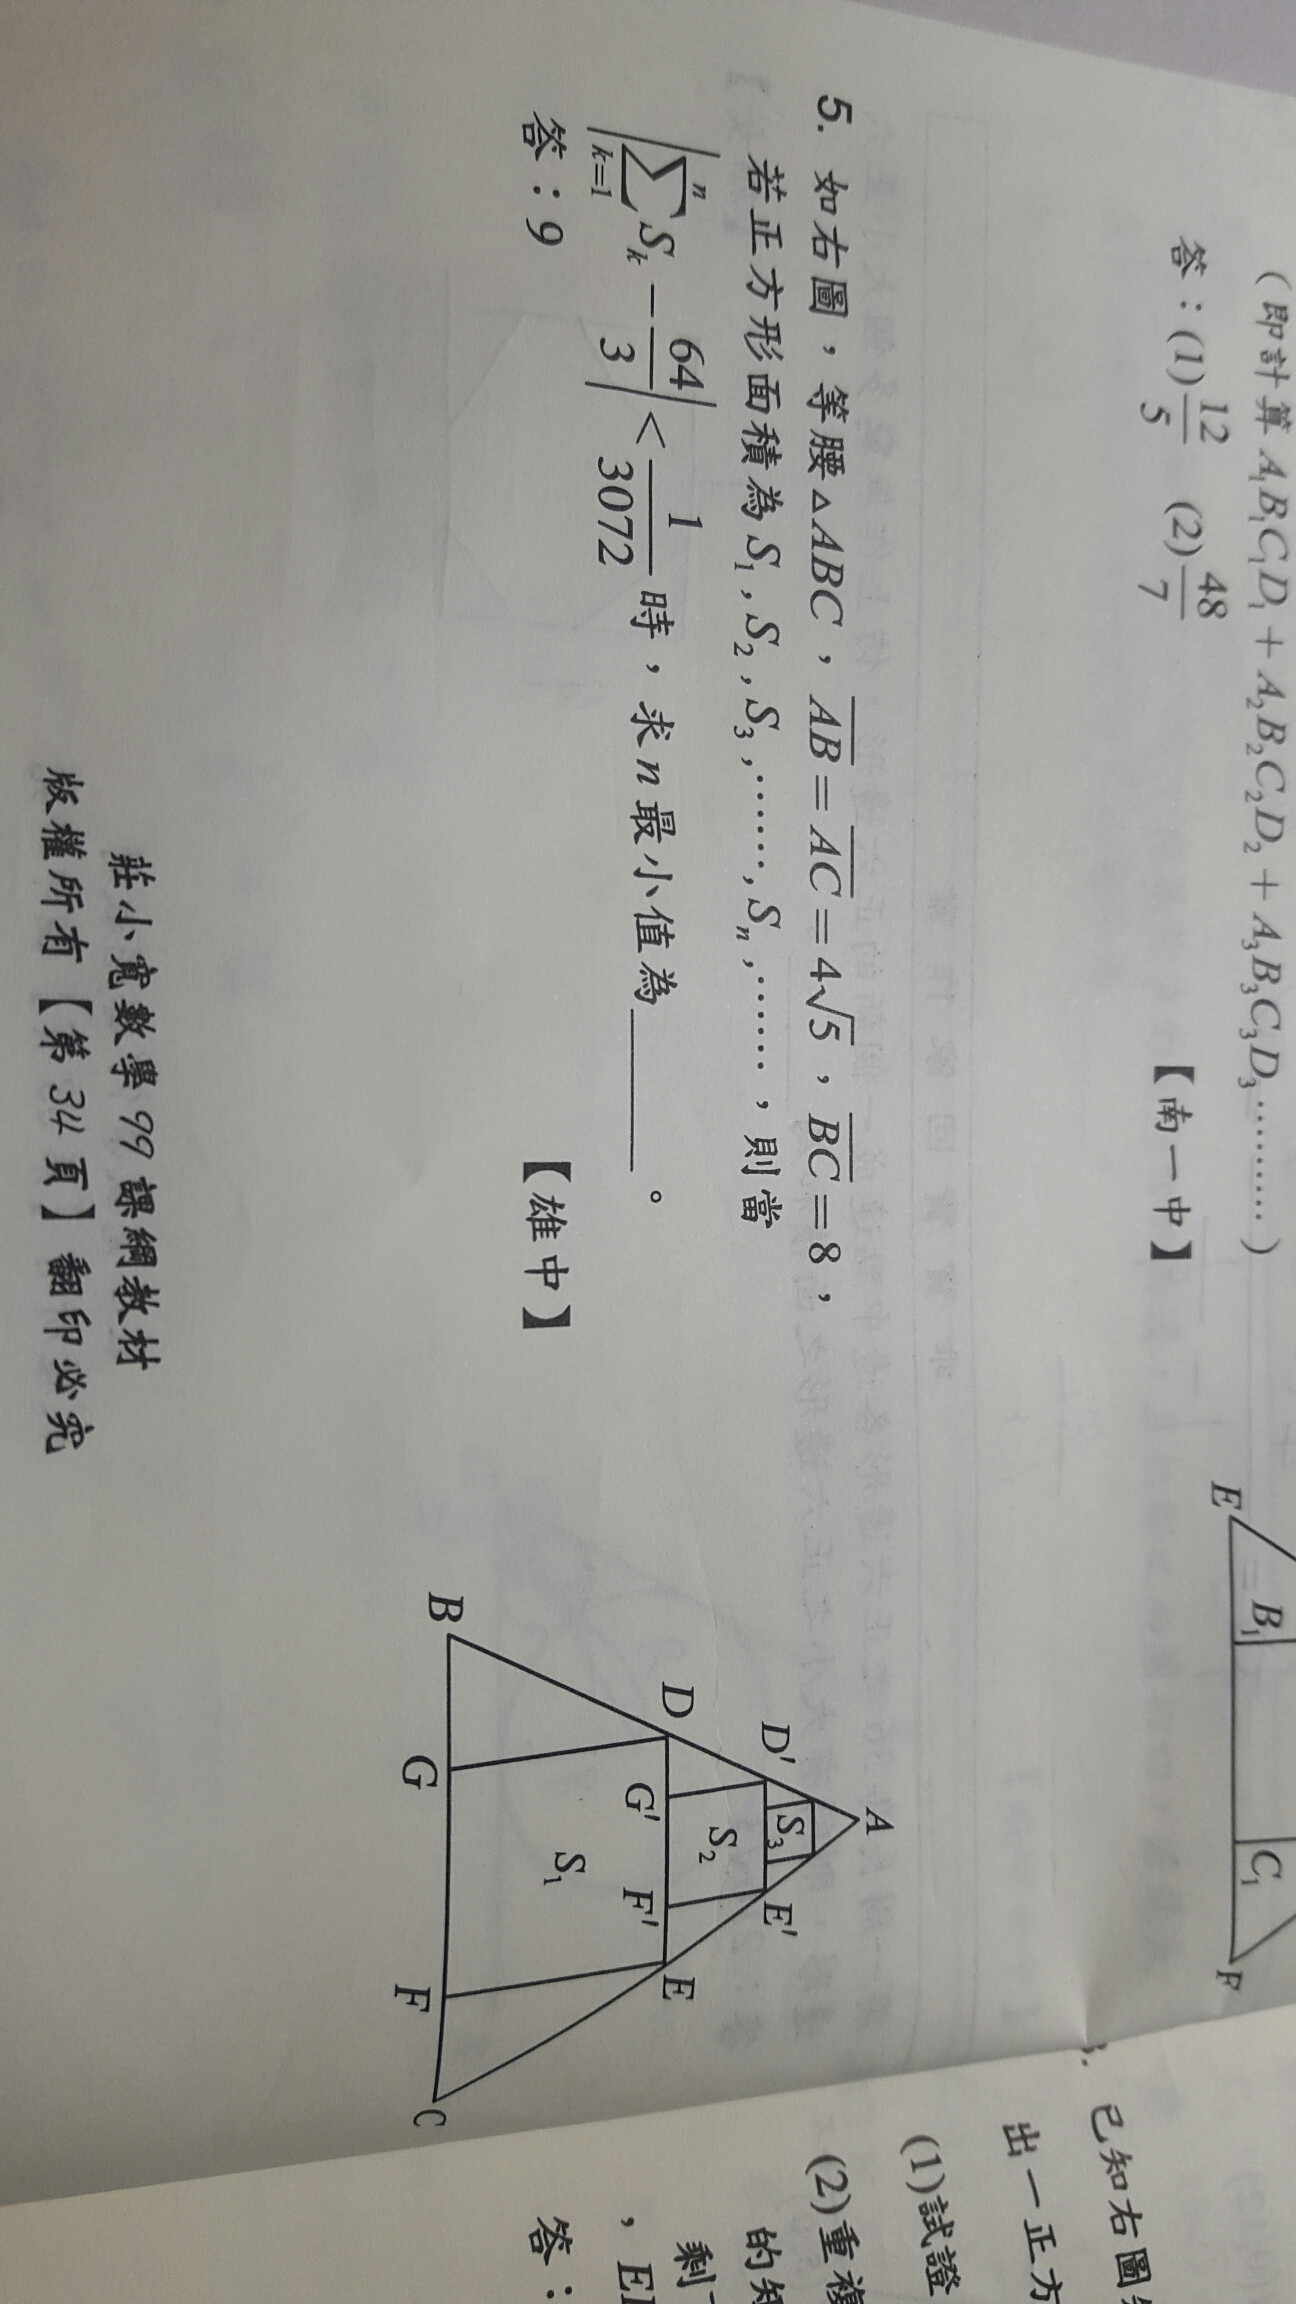 (即計算 A₁B₁C₁D₁ + A₂B₂C₂D₂ + A₃B₃C₃D₃ ………… )
答：(1) 12/5 (2) 48/7 【南一中】
E B₁ C₁ F
5. 如右圖，等腰△ABC，AB = AC = 4√5，BC = 8，
若正方形面積為 S₁, S₂, S₃, ……, Sₙ, ……，則當
|∑ₖ₌₁ⁿ Sₖ − 64/3| < 1/3072 時，求 n 最小值為______。
答：9 【雄中】
A
D' S₃ E'
D G' S₂ F' E
S₁
B G F C
莊小寬數學 99 課綱教材
版權所有【第 34 頁】翻印必究
已知右圖
出一正方
(1)試證
(2)重複
的
剩
答：